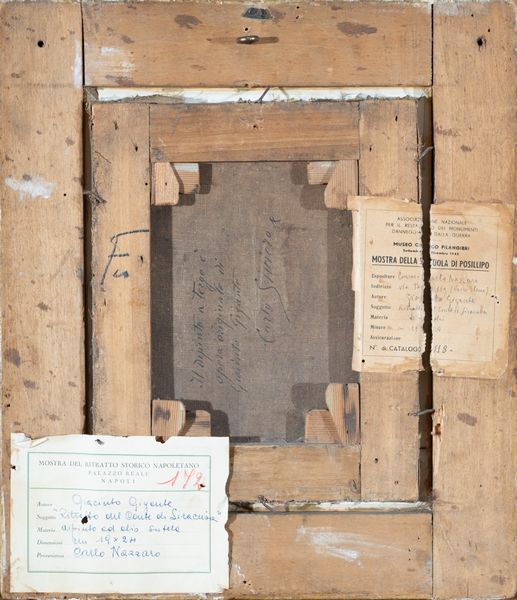 Fu
Il dipinto a tergo è
opera originale di
Giacinto Gigante
Carlo
ASSOCIAZIONE NAZIONALE
PER IL RESTAURO DEI MONUMENTI
DANNEGGIATI DALLA GUERRA
MUSEO CIVICO FILANGIERI
MOSTRA DELLA SCUOLA DI POSILLIPO
Espositore
Indirizzo
Autore Giacinto Gigante
Soggetto Ritratto Conte di Siracusa
Materia
Misure
Assicurazione
N° di CATALOGO 118-
MOSTRA DEL RITRATTO STORICO NAPOLETANO
PALAZZO REALE
NAPOLI
172
Autore Giacinto Gigante
Soggetto "Ritratto del Conte di Siracusa"
Materia dipinto ad olio su tela
Dimensioni cm 19 x 24
Provenienza Carlo Nazzaro